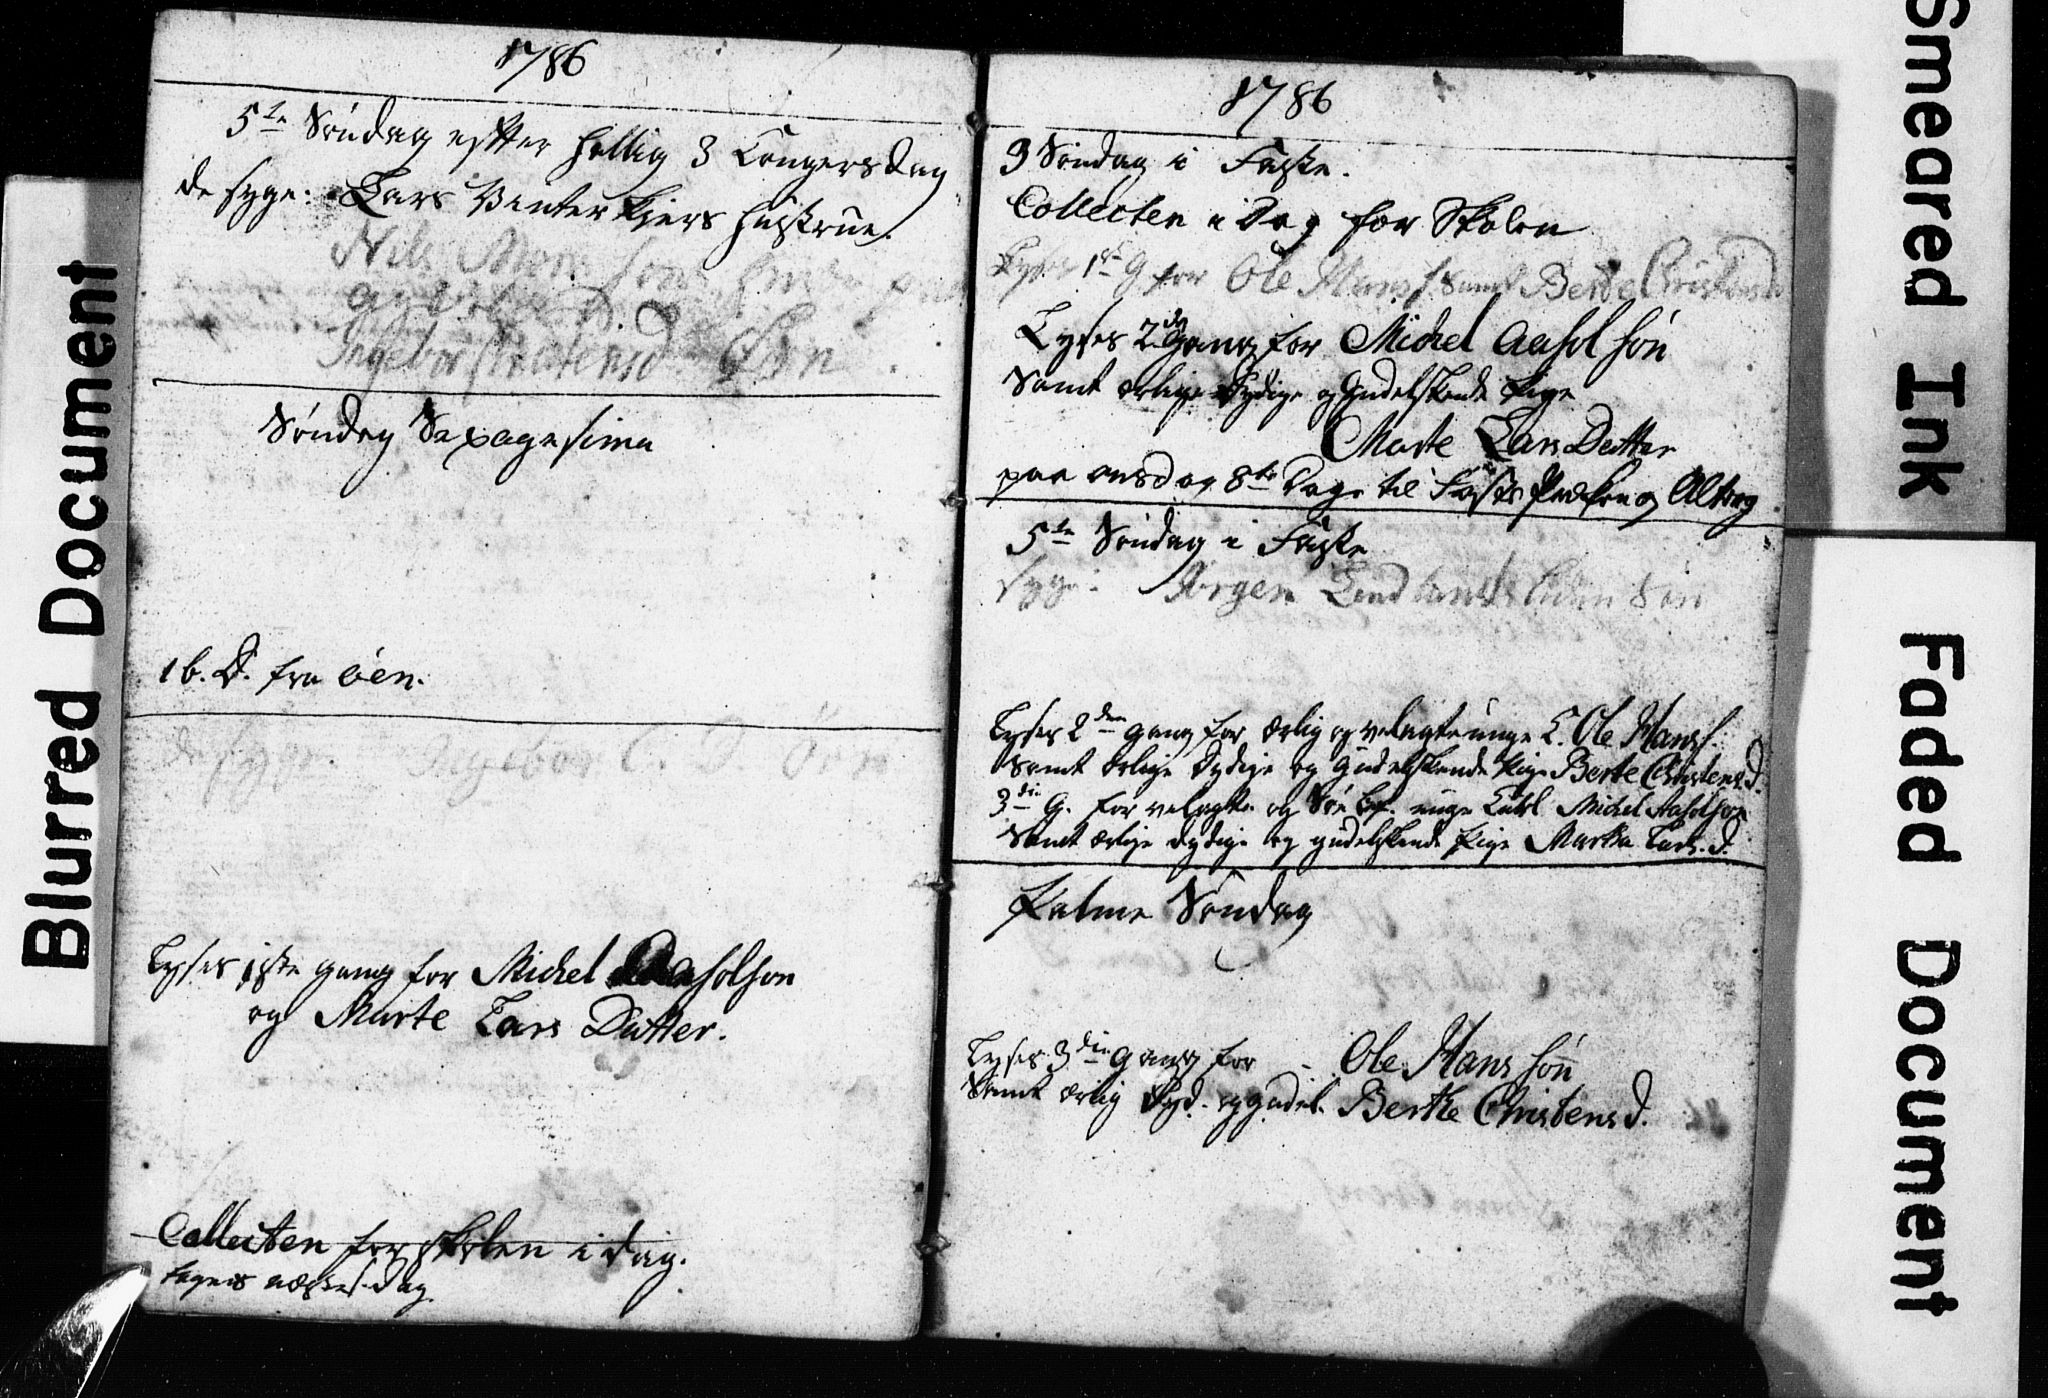 1786
5te Søndag efter Hellig 3 Kongersdag
de syge: Lars Vinterkjers Hustrue.
Nils
Ingebor Christensd.
Søndag Sexagesima
1 b. D. fra øen.
de syge. Ingebor C. D.
Lyses 1ste gang for Michel Aasolson
og Marte Lars Datter.
Collecten for skolen i dag.
tages næstes.dag
1786
3 Søndag i Faste.
Collecten i Dag for Skolen
Lyses 1ste G for Ole Hans s. samt Berte Christensd
Lyses 2den Gang for Michel Aasolsøn
Samt ærlige Dydige og Gudelskende Pige
Marte Lars Datter
paa onsdag 8te Dage til Faste Præken og Alterg
5te Søndag i Faste
syge: Jørgen
Lyses 2den gang for ærlig og velagte unge K. Ole Hanss.
Samt ærlige Dydige og Gudelskende Pige Berte Christens.d.
3die G. for velagte og unge Karl Michel Aasolson
Samt ærlige dydige og gudelskende Pige Martha Lars.d.
Palme Søndag
Lyses 3die gang for - Ole Hans søn
Samt ærlig Dyd. og gudel. Berthe Christensd.
Blurred Document
Smeared Ink
Faded Document